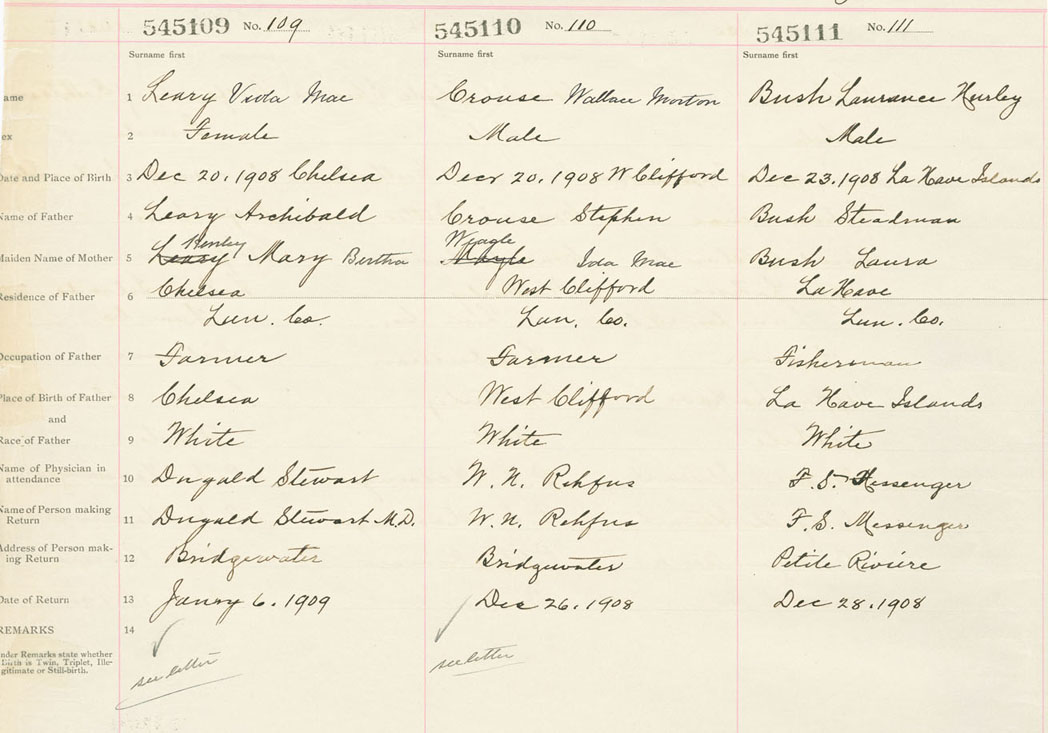 545109 No. 109 545110 No. 110 545111 No. 111
Surname first Surname first Surname first
ame 1 Leary Viola Mae Crouse Wallace Morton Bush Laurance Hurley
ex 2 Female Male Male
Date and Place of Birth 3 Dec 20. 1908 Chelsea Decr 20. 1908 W Clifford Dec 23. 1908 La Have Islands
Name of Father 4 Leary Archibald Crouse Stephen Bush Steadman
Henley Weagle
Maiden Name of Mother 5 Leary Mary Bertha Ida Mae Bush Laura
Residence of Father 6 Chelsea West Clifford La Have
Lun. Co. Lun. Co. Lun. Co.
Occupation of Father 7 Farmer Farmer Fisherman
Place of Birth of Father 8 Chelsea West Clifford La Have Islands
and
Race of Father 9 White White White
Name of Physician in
attendance 10 Dugald Stewart W. N. Rehfus F. S. Messenger
Name of Person making
Return 11 Dugald Stewart M.D. W. N. Rehfus F. S. Messenger
Address of Person mak-
ing Return 12 Bridgewater Bridgewater Petite Riviere
Date of Return 13 Janry 6. 1909 Dec 26. 1908 Dec 28. 1908
REMARKS 14
nder Remarks state whether
Birth is Twin, Triplet, Ille-
gitimate or Still-birth.
see letter see letter